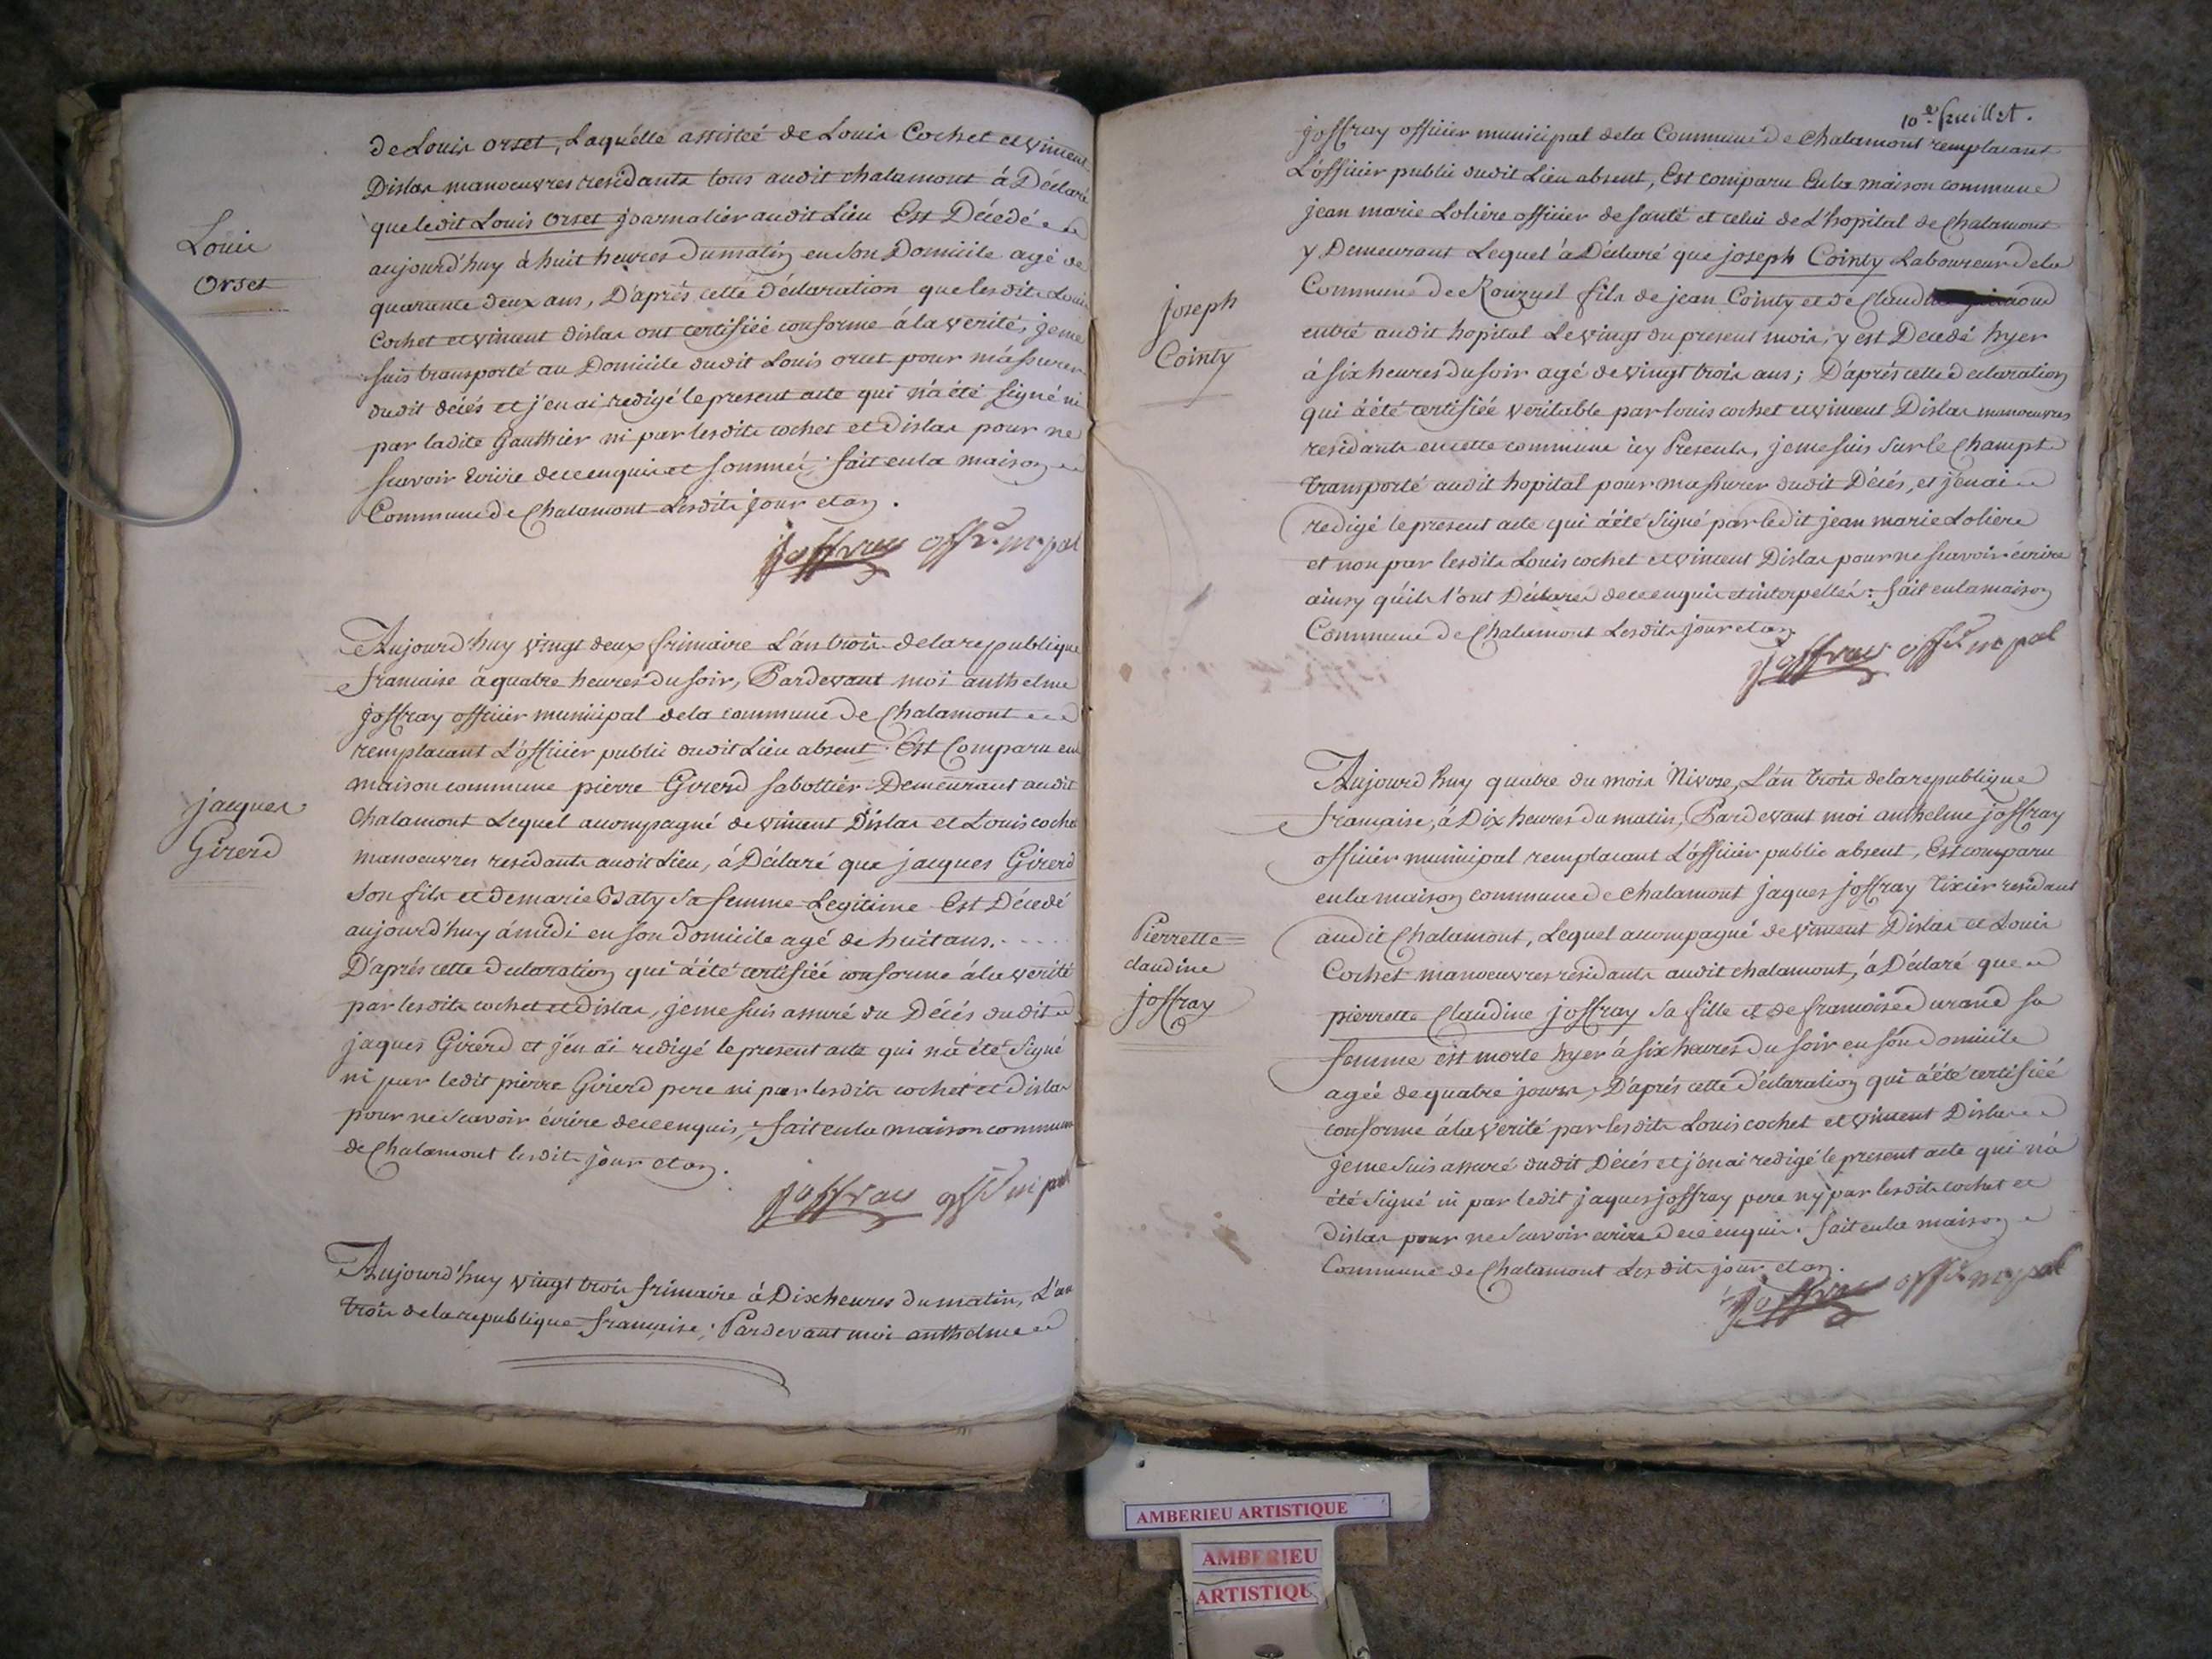 de Louis orset, Laquelle assisteé de Louis Cochet et vincent
Dislas manoeuvres residants tous audit chalamont á Déclaré
que ledit Louis orset journalier audit Lieu Est Décedé
Louis
Orset
aujourd'huy á huit heures Dumatin en Son Domicile agé de
quarante deux ans, D'aprés cette déclaration que lesdits Louis
Cochet et vincent dislas ont certifiée conforme á la verité, je me
suis transporté au Domicile dudit Louis orset pour m'assurer
dudit décés et j'en ai redigé le present acte qui n'a été signé ni
par ladite Gauthier ni par lesdits cochet et dislas pour ne
scavoir Ecrire de ce enquis et sommés, fait en la maison
Commune de Chalamont Lesdits jour et an.
joffray offer m.pal
Aujourd'huy vingt deux frimaire L'an trois de la republique
francaise á quatre heures du soir, Pardevant moi anthelme
joffray officier municipal de la commune de Chalamont
remplacant L'officier public dudit Lieu absent. Est Comparu en
maison commune pierre Girerd sabottier Demeurant audit
jacques
Girerd
Chalamont Lequel accompagné de vincent Dislas et Louis cochet
manoeuvres residants audit Lieu, á Déclaré que jacques Girerd
Son fils et de marie Baty sa femme Legitime Est Décedé
aujourd'huy á midi en son domicile agé de huit ans.
D'aprés cette declaration qui á été certifiée conforme á la verité
par lesdits cochet et dislas, je me suis assuré du Décés dudit
jaques Girerd et j'en ai redigé le present acte qui n'a été Signé
ni par ledit pierre Girerd pere ni par lesdits cochet et dislas
pour ne Scavoir écrire de ce enquis, fait en la maison commune
de Chalamont lesdits jour et an.
joffray offer m pal
Aujourd'huy vingt trois frimaire á Dix heures du matin, L'an
trois de la republique francaise, Pardevant moi anthelme
10e feuillet.
joffray officier municipal de la Commune de Chalamont remplacant
L'officier public dudit Lieu absent, Est comparu En la maison commune
jean marie Loliere officier de santé et celui de L'hopital de Chalamont
y Demeurant Lequel á Déclaré que joseph Cointy Laboureur de la
joseph
Cointy
Commune de Rouzuel fils de jean Cointy et de Claudine
entré audit hopital Le vingt du present mois, y est Décedé hyer
á six heures du soir agé de vingt trois ans; D'aprés cette declaration
qui á été certifiée veritable par louis cochet et vincent Dislas manoeuvres
residants en cette commune icy Presents, je me suis sur le Champt
transporté audit hopital pour m'assurer dudit Décés, et j'en ai
redigé le present acte qui á été signé par ledit jean marie Loliere
et non par lesdits Louis cochet et vincent Dislas pour ne scavoir écrire
ainsy qu'ils l'ont Déclaré de ce enquis et interpellés: fait en la maison
Commune de Chalamont Lesdits jour et an.
joffray offer m pal
Aujourd'huy quatre du mois Nivose, L'an trois de la republique
francaise, á Dix heures du matin, Pardevant moi anthelme joffray
officier municipal remplacant L'officier public absent, Est comparu
en la maison commune de Chalamont jaques joffray tixier residant
Pierrette
claudine
joffray
audit Chalamont, Lequel accompagné de vincent Dislas et Louis
Cochet manoeuvres residants audit chalamont, á Déclaré que
pierrette Claudine joffray sa fille et de francoise Durand sa
femme est morte hyer á six heures Du soir en son domicile
ageé de quatre jours, D'aprés cette declaration qui á été certifiée
conforme á la verité par lesdits Louis cochet et vincent Dislas
je me suis assuré dudit Décés et j'en ai redigé le present acte qui n'a
été signé ni par ledit jaques joffray pere ny par lesdits cochet et
dislas pour ne Scavoir ecrire De ce enquis. fait en la maison
Commune de Chalamont Lesdits jour et an.
joffray offer m pal
AMBERIEU ARTISTIQUE
AMBERIEU
ARTISTIQU